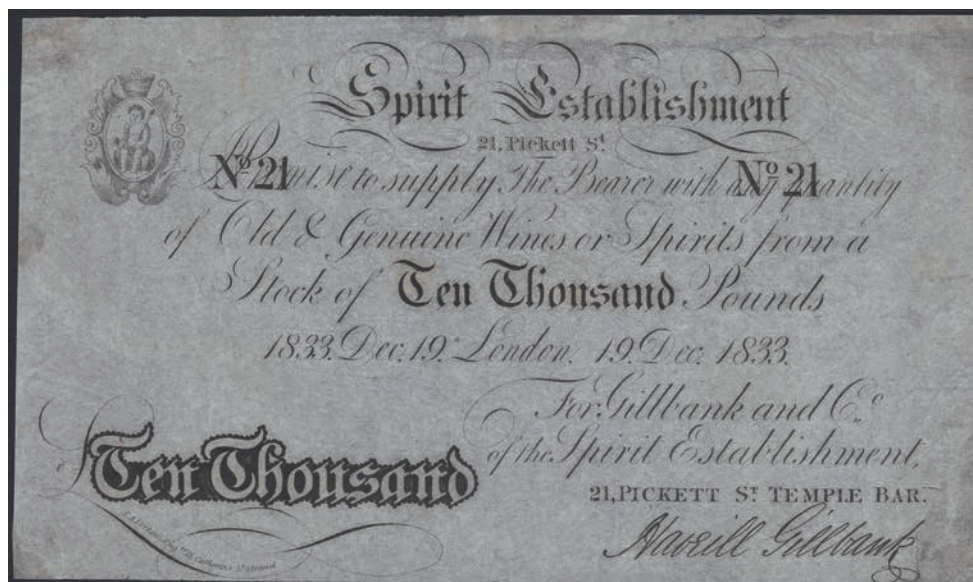 Spirit Establishment
21, Pickett St.
No 21 No 21
I Promise to supply The Bearer with any quantity
of Old & Genuine Wines or Spirits from a
Stock of Ten Thousand Pounds
1833. Dec. 19. London. 19. Dec. 1833.
For Gillbank and Co.
of the Spirit Establishment,
21, PICKETT ST. TEMPLE BAR.
Ten Thousand
Haveill Gillbank